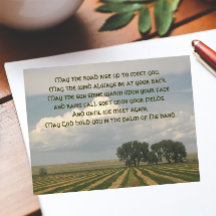 May the road rise up to meet you.
May the wind always be at your back.
May the sun shine warm upon your face
and rains fall soft upon your fields.
And until we meet again,
May God hold you in the palm of His hand.